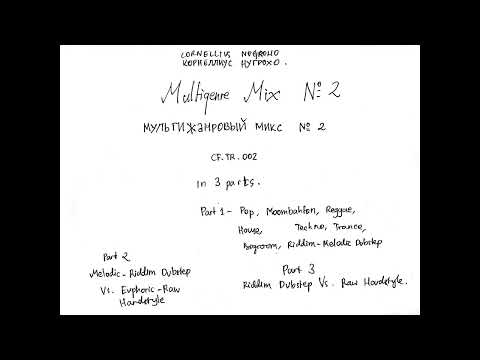 CORNELLIUS NUGROHO
КОРНЕЛЛИУС НУГРОХО.
Multigenre Mix № 2
МУЛЬТИЖАНРОВЫЙ МИКС № 2
CF.TR.002
In 3 parts.
Part 1 - Pop, Moombahton, Reggae,
House, Techno, Trance,
Bigroom, Riddim-Melodic Dubstep
Part 2
Melodic-Riddim Dubstep
Vs. Euphoric-Raw
Hardstyle
Part 3
Riddim Dubstep Vs. Raw Hardstyle.